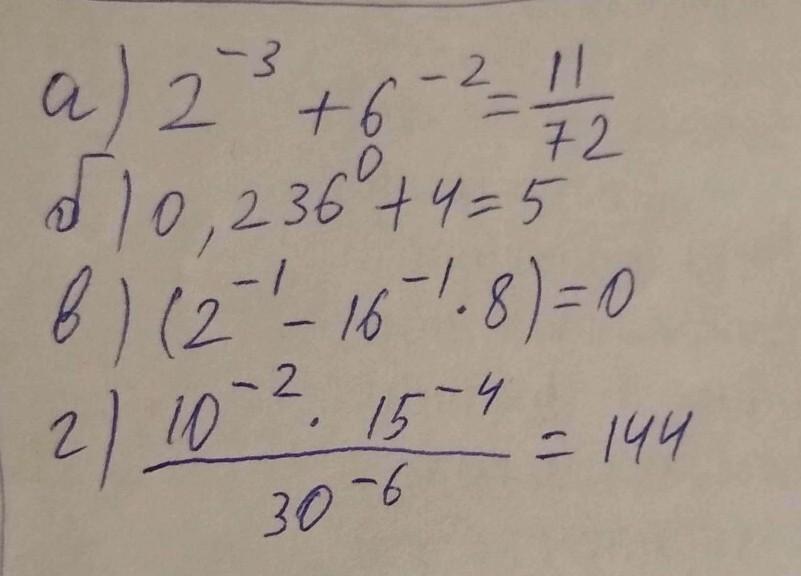 а) 2^{-3} + 6^{-2} = \frac{11}{72}
б) 0,236^{0} + 4 = 5
в) (2^{-1} - 16^{-1} · 8) = 0
г) \frac{10^{-2} · 15^{-4}}{30^{-6}} = 144